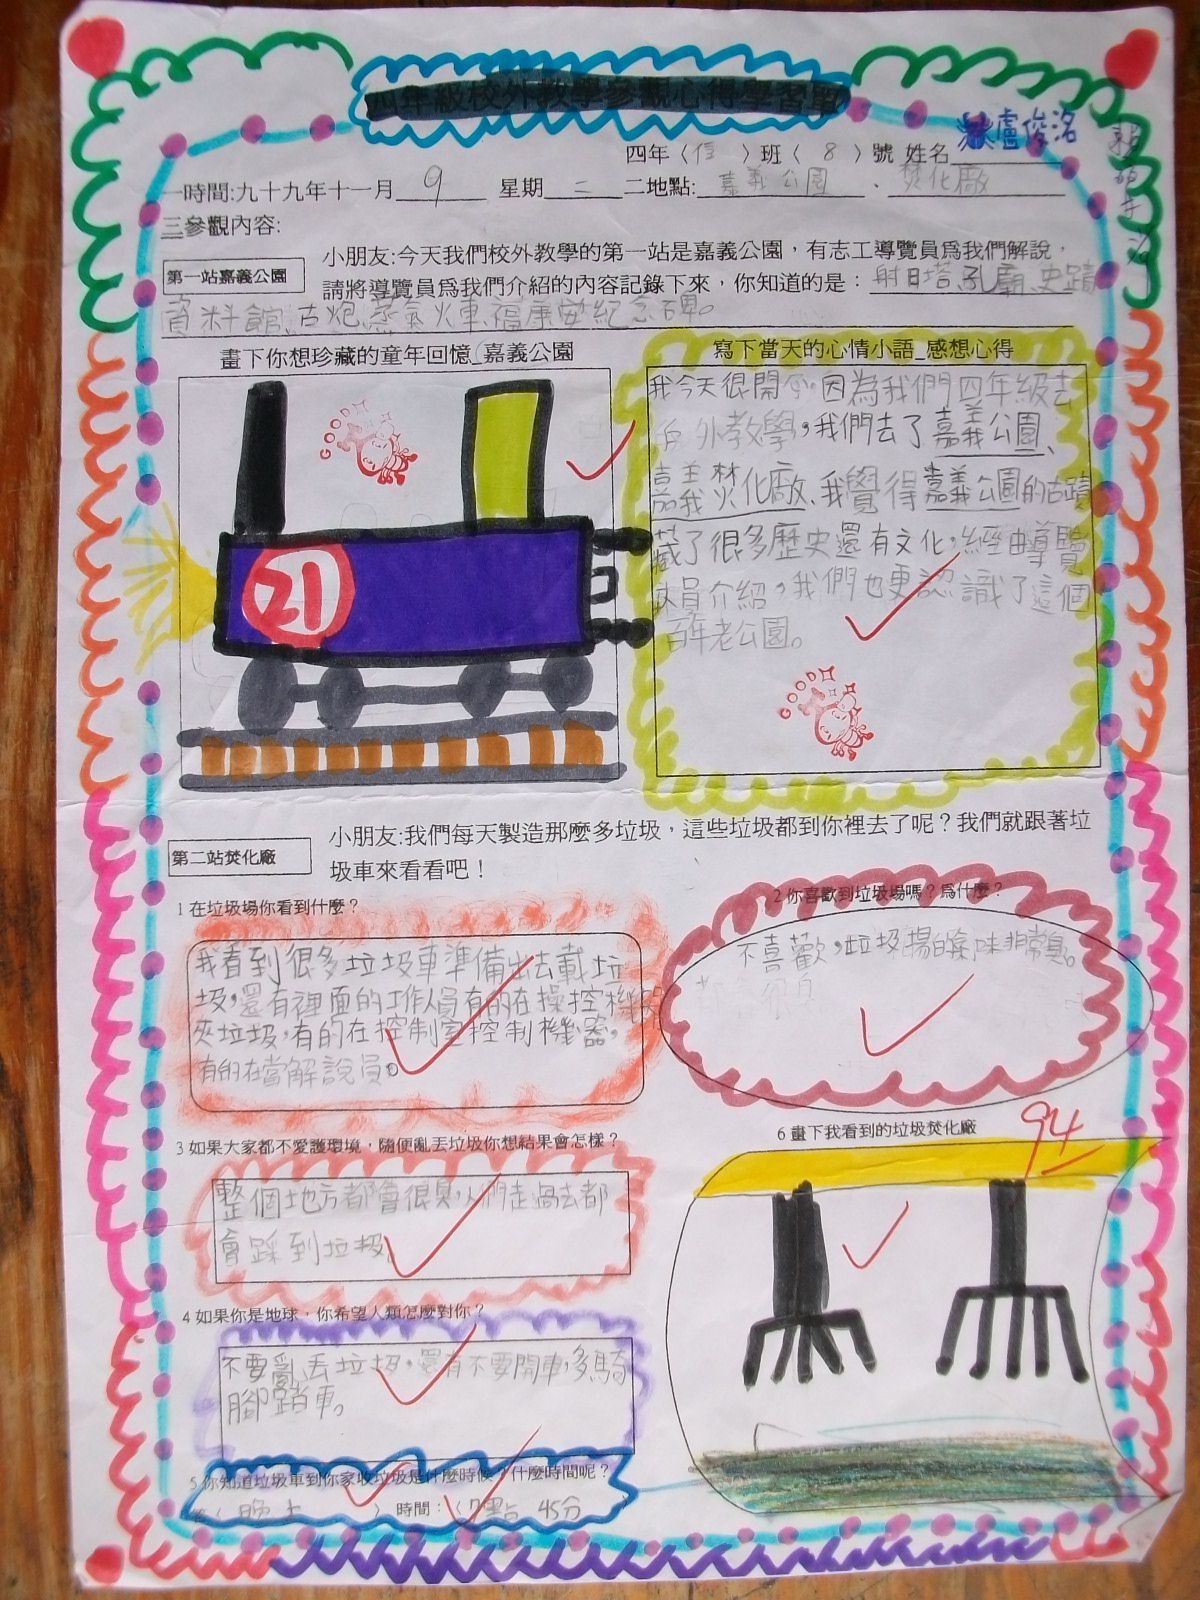 四年級校外教學參觀心得學習單
四年〈信 〉班〈 8 〉號 姓名 盧俊洺
一時間:九十九年十一月 9 星期 二 二地點: 嘉義公園 、 焚化廠
三參觀內容:
第一站嘉義公園
小朋友:今天我們校外教學的第一站是嘉義公園，有志工導覽員為我們解說，
請將導覽員為我們介紹的內容記錄下來，你知道的是： 射日塔、孔廟、史蹟
資料館、古炮、蒸氣火車、福康安紀念碑。
畫下你想珍藏的童年回憶_嘉義公園
GOOD
21
寫下當天的心情小語_感想心得
我今天很開心，因為我們四年級去
校外教學，我們去了嘉義公園、
嘉義焚化廠、我覺得嘉義公園的古蹟
藏了很多歷史還有文化，經由導覽
員介紹，我們也更認識了這個
百年老公園。
GOOD
第二站焚化廠
小朋友:我們每天製造那麼多垃圾，這些垃圾都到你裡去了呢？我們就跟著垃
圾車來看看吧！
1 在垃圾場你看到什麼？
我看到很多垃圾車準備出去載垃
圾，還有裡面的工作人員有的在操控機器
夾垃圾，有的在控制室控制機器，
有的在當解說員。
2 你喜歡到垃圾場嗎？為什麼？
不喜歡，垃圾場的味非常臭。
3 如果大家都不愛護環境，隨便亂丟垃圾你想結果會怎樣？
整個地方都會很臭，人們走過去都
會踩到垃圾。
4 如果你是地球，你希望人類怎麼對你？
不要亂丟垃圾，還有不要開車，多騎
腳踏車。
5 你知道垃圾車到你家收垃圾是什麼時候？什麼時間呢？
答〈 晚上 〉 時間：〈7點 45分
6 畫下我看到的垃圾焚化廠
94